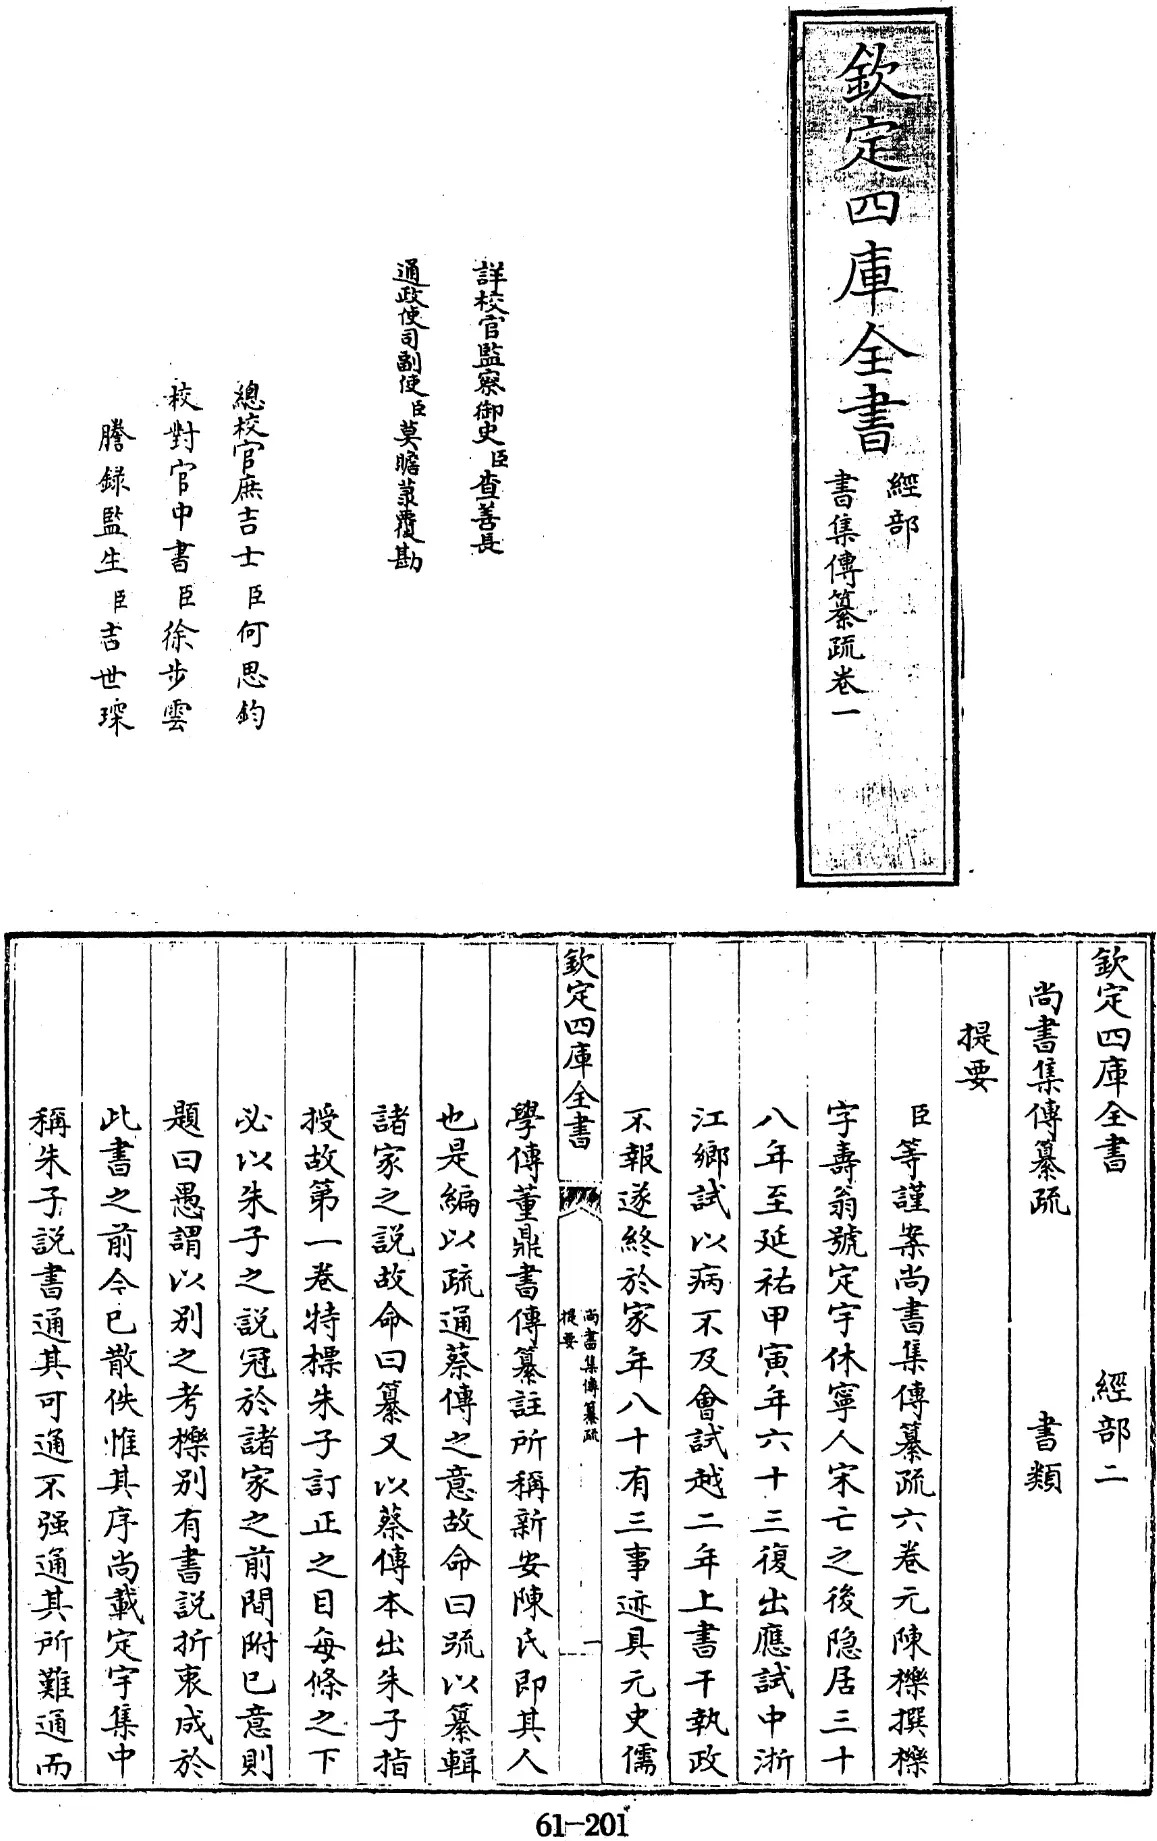 欽定四庫全書
經部
書集傳纂疏卷一
詳校官監察御史臣查善長
通政使司副使臣莫瞻菉覆勘
總校官庶吉士臣何思鈞
校對官中書臣徐步雲
謄錄監生臣吉世琛
欽定四庫全書 經部二
尚書集傳纂疏 書類
提要
臣等謹案尚書集傳纂疏六卷元陳櫟撰櫟
字壽翁號定宇休寧人宋亡之後隱居三十
八年至延祐甲寅年六十三復出應試中浙
江鄉試以病不及會試越二年上書干執政
不報遂終於家年八十有三事迹具元史儒
欽定四庫全書
尚書集傳纂疏
提要
一
學傳董鼎書傳纂註所稱新安陳氏即其人
也是編以疏通蔡傳之意故命曰疏以纂輯
諸家之説故命曰纂又以蔡傳本出朱子指
授故第一卷特標朱子訂正之目每條之下
必以朱子之説冠於諸家之前間附已意則
題曰愚謂以别之考櫟别有書説折衷成於
此書之前今已散佚惟其序尚載定宇集中
稱朱子説書通其可通不强通其所難通而
61-201